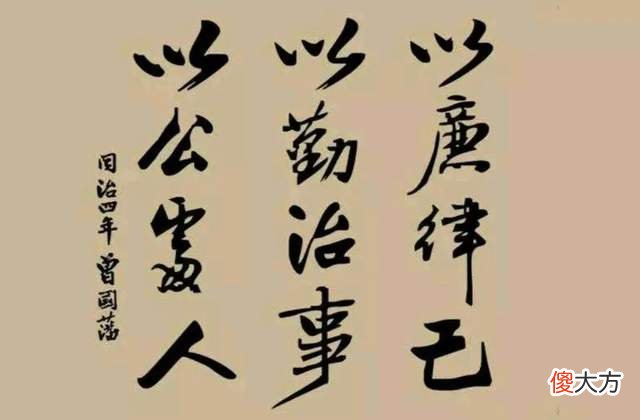 以廉律己
以勤治事
以公處人
同治四年 曾國藩
傻大方